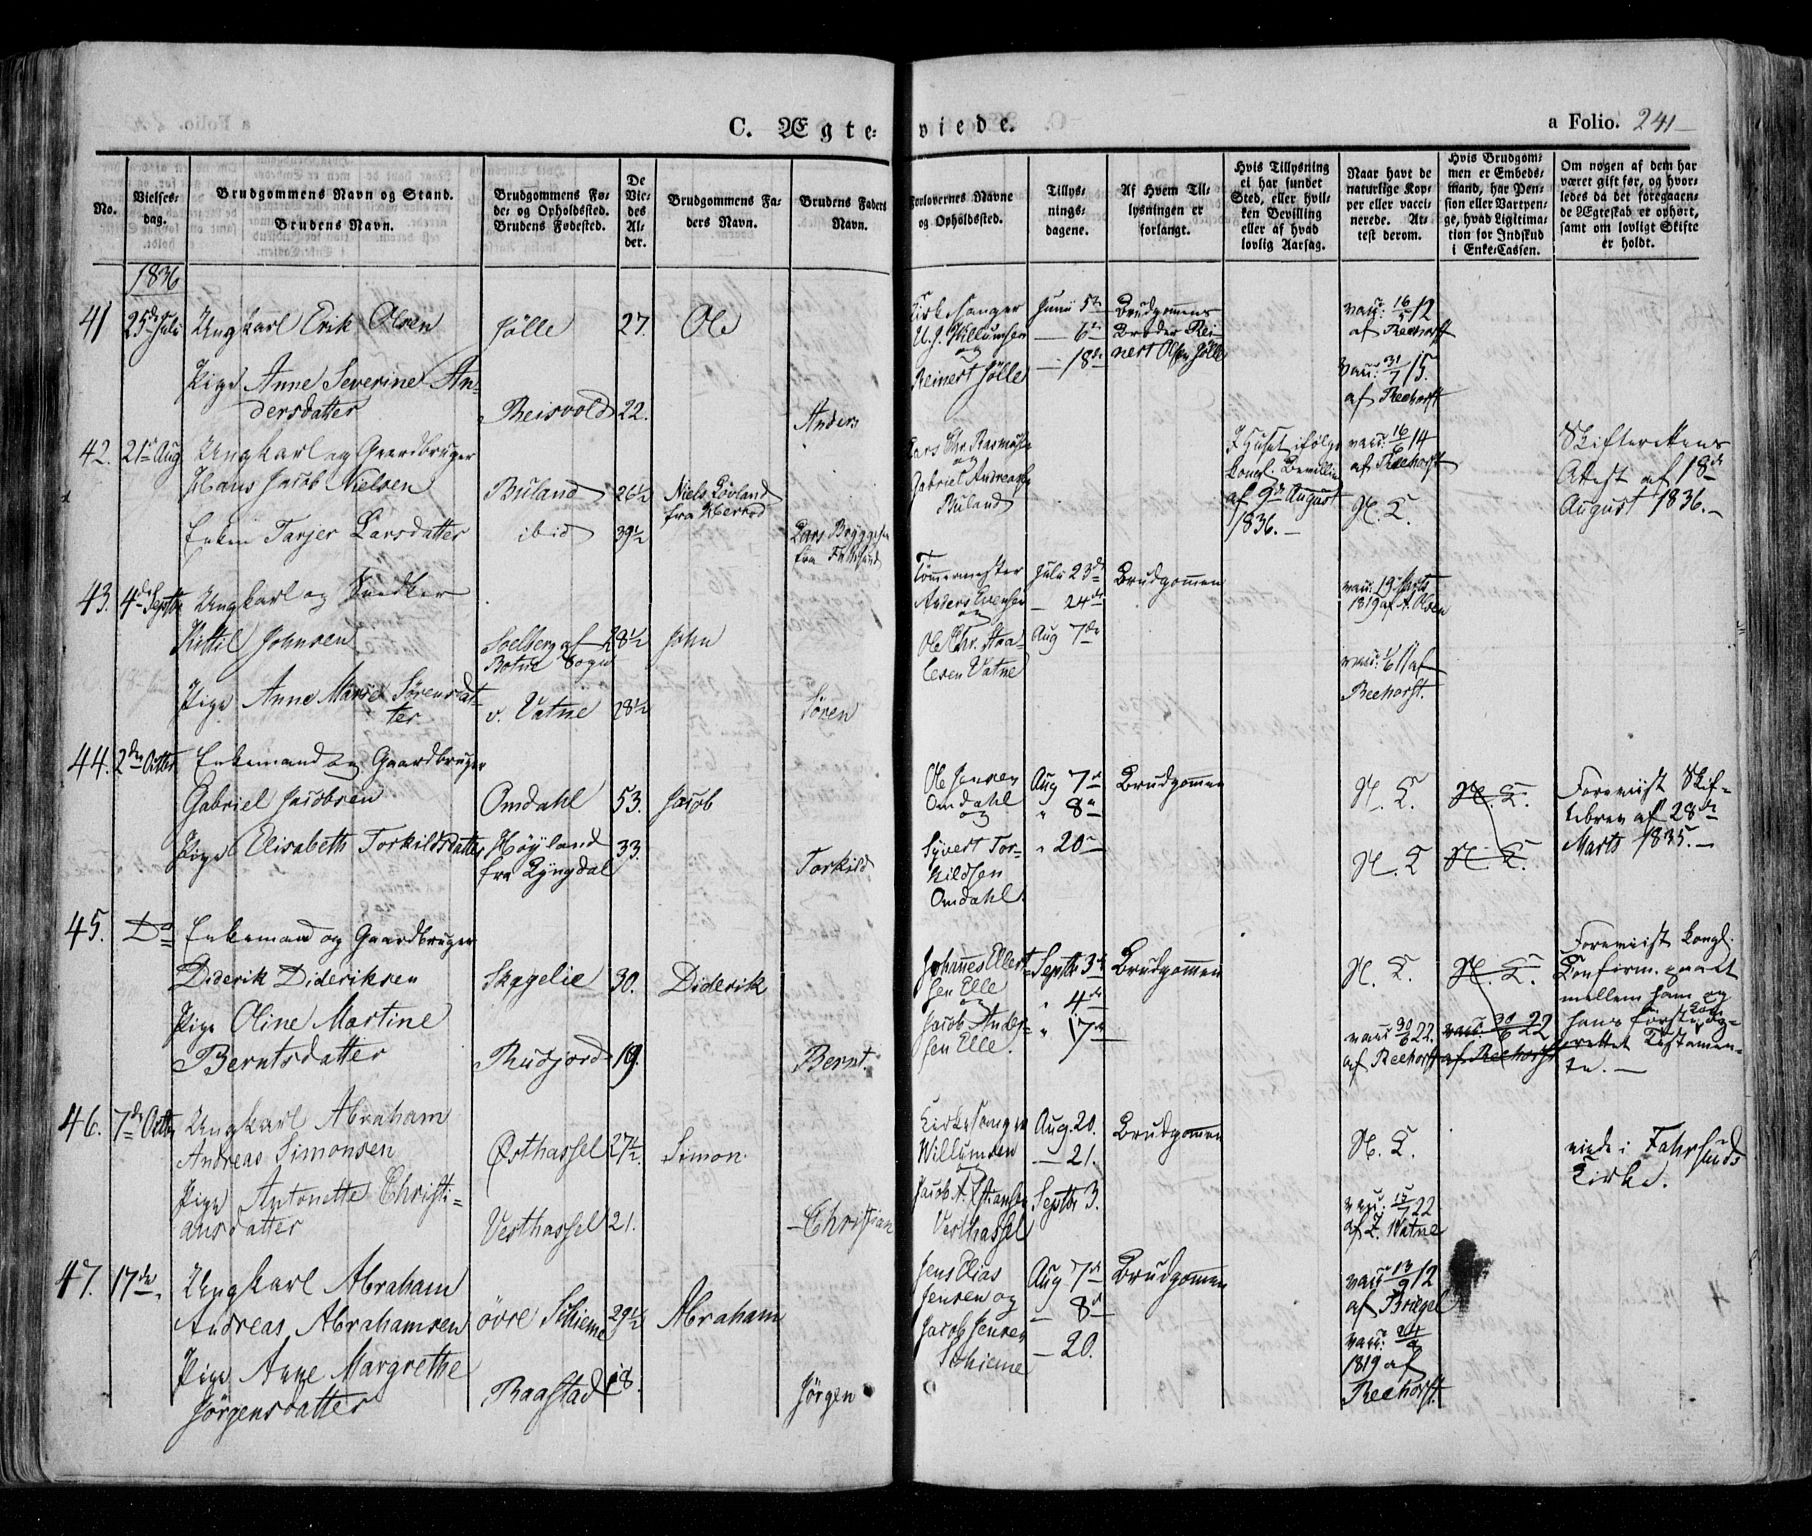 C. Ægteviede.
a Folio. 241
No.
Vielsesdag.
Brudgommens Navn og Stand.
Brudens Navn.
Brudgommens Føde- og Opholdssted.
Brudens Fødested.
De Viedes Alder.
Brudgommens Faders Navn.
Brudens Faders Navn.
Forlovernes Navne og Opholdssted.
Tillysningsdagene.
Af Hvem Tillysningen er forlangt.
Hvis Tillysning ei har fundet Sted, eller hvilken Bevilling eller af hvad lovlig Aarsag.
Naar havt de naturlige Kopper eller vaccinerede. Attest derom.
Hvis Brudgommen er Embedsmand, har Pension eller Vartpenge, hvad Ligitimation for Indskud i Enke-Cassen.
Om nogen af dem har været gift før, og hvorledes da det foregaaende Ægteskab er ophørt, samt om lovligt Skifte er holdt.
1836
41 25de Juli Ungkarl Erik Olsen Jølle 27. Ole
Kirkesanger
Willumsen
og
Reinert Jølle
Junii 5te
— 6te
— 18de
Brudgommens
Broder Rei-
nert Olsen Jølle
vacc: 16/5 12
af Reehorst
Pige Anne Severine An-
dersdatter Reisvold 22. Anders
vacc: 31/7 15.
af Reehorst
42. 21de Aug Ungkarl og Gaardbruger
Hans Jacob Nielsen Buland 26½ Niels Løvland
fra Herred
Lars Chr. Rasmus
og
Gabriel Andreas
Buland
I Huset ifølge
kongl. Bevilling
af 9de August
1836.—
vacc: 16/6 14
af Reehorst
N. B.
Skifterettens
Attest af 18de
August 1836.—
Enken Tarjer Larsdatter ibid 39½ Lars
fra Fahrsund
43. 4de Septbr Ungkarl og Snedker
Kittil Johnsen Solberg af
Botne Sogn 28½ John
Tømmermester
Anders Evensen
og
Ole Chr. Staa-
lesen Vatne
Juli 23de
— 24de
Aug 7de
Brudgommen
vacc: 13 Marts
1819 af A. Olsen
Pige Anne Marie Sørensdat-
ter v. Vatne 28½ Søren
af
Reehorst.
44. 2den Octbr Enkemand og Gaardbruger
Gabriel Jacobsen Omdahl 53. Jacob
Ole Jensen
Omdahl
og
Syvert Tor-
kildsen
Omdahl
Aug 7de
" 8de
" 20de
Brudgommen
N. B. N. B.
Foreviist Skif-
tebrev af 28de
Marts 1835.—
Pige Elisabeth Torkildsdatter Høyland
fra Lyngdal 33. Torkild
N. B N. B.
45. Do Enkemand og Gaardbruger
Diderik Dideriksen Skagelie 30. Diderik
Johannes Ellert-
sen Elle
og
Jacob Ander-
sen Elle.
Septbr 3de
" 4de
" 17de
Brudgommen
N. B. N. B.
Foreviist kongl.
Confirm. paa et
mellem ham og
hans første Kone op-
rettet Testamen-
te.—
Pige Oline Martine
Berntsdatter Rudjord 19. Bernt.
vacc: 30/6 22. vacc: 30/6 22
af Reehorst af Reehorst
46. 7de Octbr Ungkarl Abraham
Andreas Simonsen Østhassel 27½. Simon.
Kirkesanger
Willumsen
og
Jacob A. Xstiansen
Vesthassel
Aug. 20.
— 21.
Septbr 3.
Brudgommen
N. B.
viede i Fahrsunds
Kirke.
Pige Antonette Christi-
ansdatter Vesthassel 21. Christian
vacc: 15/7 22
af Z. Vatne
47. 17de Ungkarl Abraham
Andreas Abrahamsen øvre Skieme 29½ Abraham
Jens Elias
Jensen og
Jacob Jensen
Schieme
Aug 7de
— 8de
— 20.
Brudgommen
vacc 13/9 12
af Briegel
Pige Anne Margrethe
Jörgensdatter Raastad 18. Jørgen
vacc:
1819 af
Reehorst.